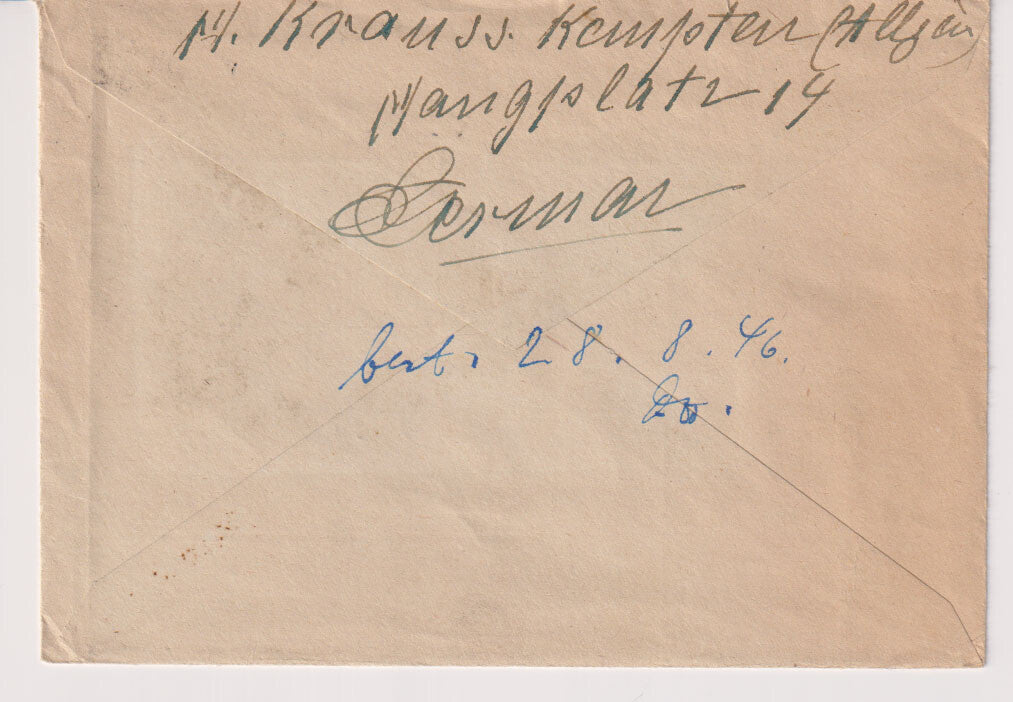 M. Krauss. Kempten (Allgäu)
Mangplatz 14
German
28. 8. 46.